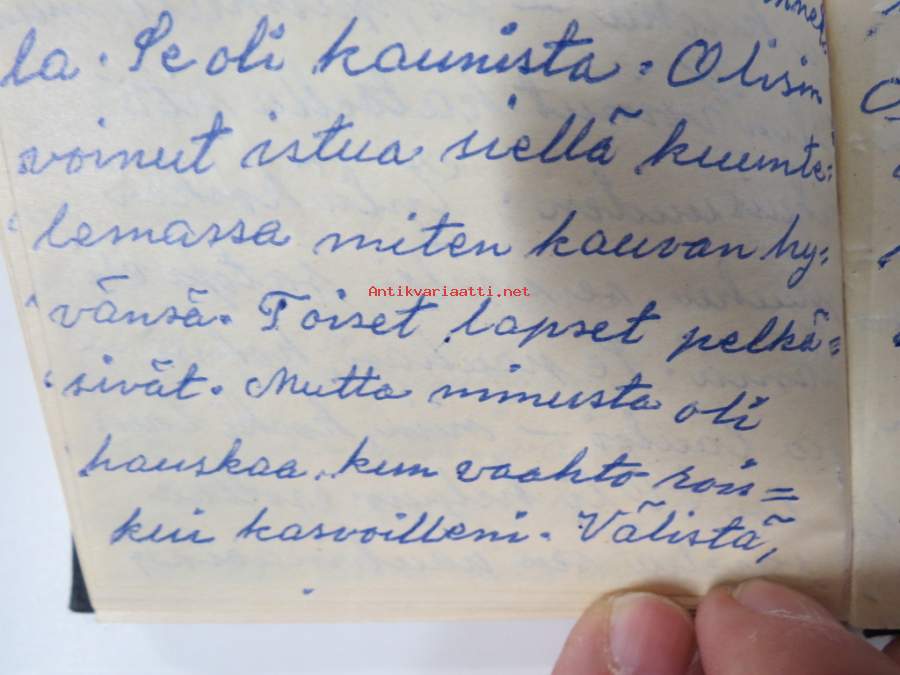 la. Se oli kaunista. Olisin
voinut istua siellä kuunte=
lemassa miten kauvan hy=
vänsä. Toiset lapset pelkä=
sivät. Mutta minusta oli
hauskaa, kun vaahto rois=
kui kasvoilleni. Välistä,
Antikvariaatti.net